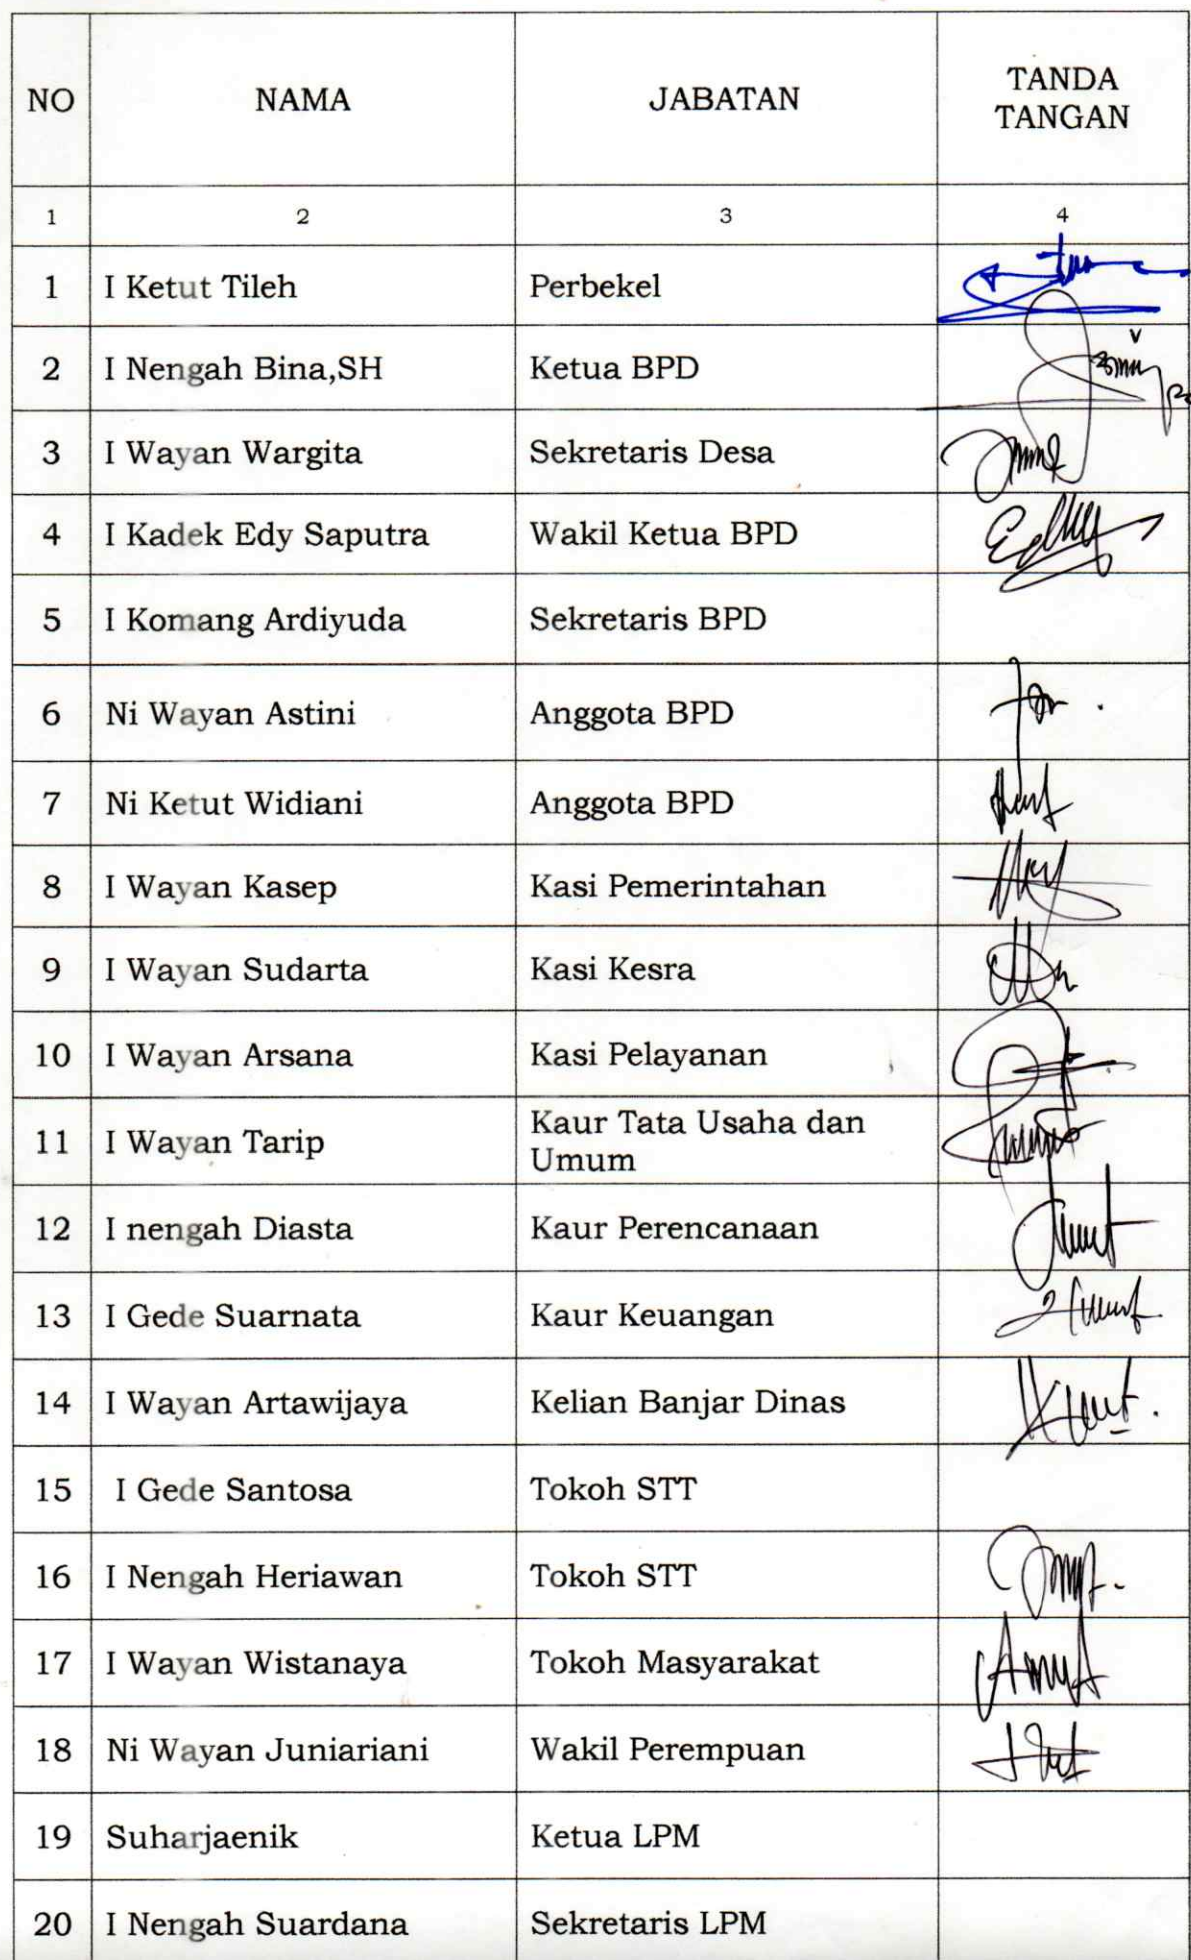 NO NAMA JABATAN TANDA
TANGAN
1 2 3 4
1 I Ketut Tileh Perbekel
2 I Nengah Bina,SH Ketua BPD
3 I Wayan Wargita Sekretaris Desa
4 I Kadek Edy Saputra Wakil Ketua BPD
5 I Komang Ardiyuda Sekretaris BPD
6 Ni Wayan Astini Anggota BPD
7 Ni Ketut Widiani Anggota BPD
8 I Wayan Kasep Kasi Pemerintahan
9 I Wayan Sudarta Kasi Kesra
10 I Wayan Arsana Kasi Pelayanan
11 I Wayan Tarip Kaur Tata Usaha dan
Umum
12 I nengah Diasta Kaur Perencanaan
13 I Gede Suarnata Kaur Keuangan
14 I Wayan Artawijaya Kelian Banjar Dinas
15 I Gede Santosa Tokoh STT
16 I Nengah Heriawan Tokoh STT
17 I Wayan Wistanaya Tokoh Masyarakat
18 Ni Wayan Juniariani Wakil Perempuan
19 Suharjaenik Ketua LPM
20 I Nengah Suardana Sekretaris LPM